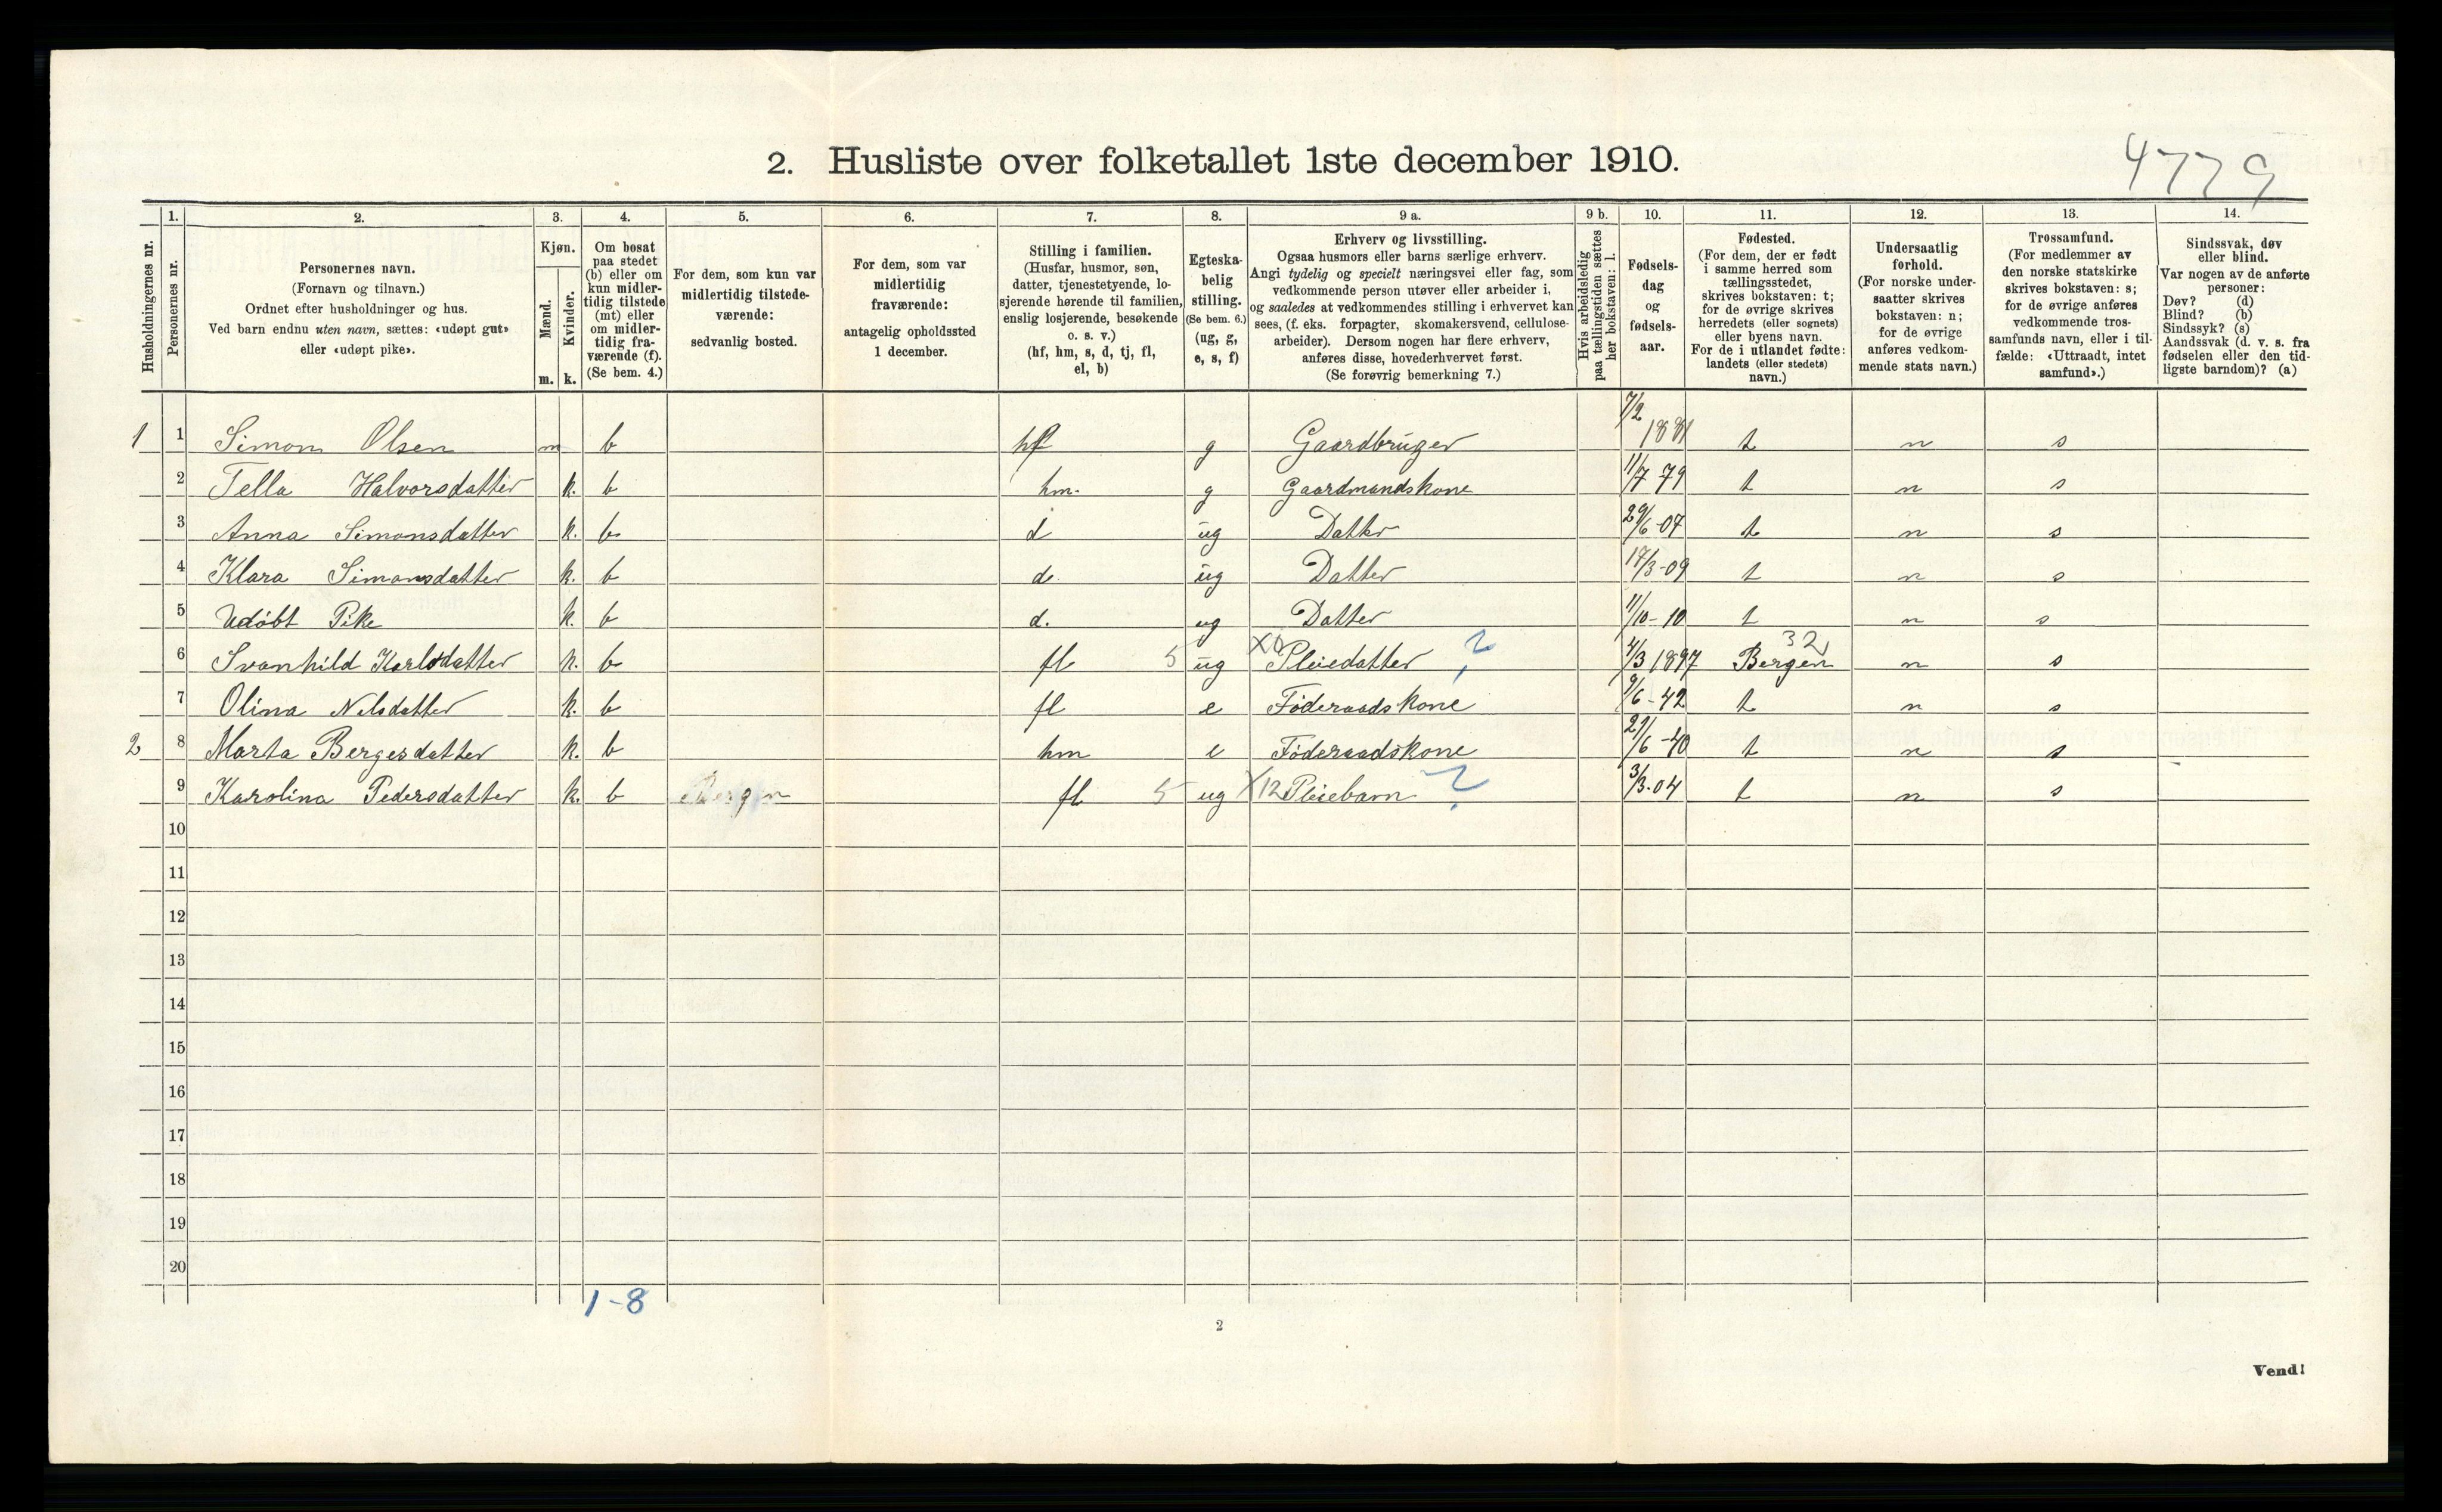 2. Husliste over folketallet 1ste december 1910.
4779
Husholdningernes nr.
1.
Personernes nr.
2.
Personernes navn.
(Fornavn og tilnavn.)
Ordnet efter husholdninger og hus.
Ved barn endnu uten navn, sættes: «udøpt gut»
eller «udøpt pike».
3.
Kjøn.
Mænd.
Kvinder.
m. k.
4.
Om bosat
paa stedet
(b) eller om
kun midler-
tidig tilstede
(mt) eller
om midler-
tidig fra-
værende (f).
(Se bem. 4.)
5.
For dem, som kun var
midlertidig tilstede-
værende:
sedvanlig bosted.
6.
For dem, som var
midlertidig
fraværende:
antagelig opholdssted
1 december.
7.
Stilling i familien.
(Husfar, husmor, søn,
datter, tjenestetyende, lo-
sjerende hørende til familien,
enslig losjerende, besøkende
o. s. v.)
(hf, hm, s, d, tj, fl,
el, b)
8.
Egteska-
belig
stilling.
(Se bem. 6.)
(ug, g,
e, s, f)
9 a.
Erhverv og livsstilling.
Ogsaa husmors eller barns særlige erhverv.
Angi tydelig og specielt næringsvei eller fag, som
vedkommende person utøver eller arbeider i,
og saaledes at vedkommendes stilling i erhvervet kan
sees, (f. eks. forpagter, skomakersvend, cellulose-
arbeider). Dersom nogen har flere erhverv,
anføres disse, hovederhvervet først.
(Se forøvrig bemerkning 7.)
9 b.
Hvis arbeidsledig
paa tællingstiden sættes
her bokstaven: l.
10.
Fødsels-
dag
og
fødsels-
aar.
11.
Fødested.
(For dem, der er født
i samme herred som
tællingsstedet,
skrives bokstaven: t;
for de øvrige skrives
herredets (eller sognets)
eller byens navn.
For de i utlandet fødte:
landets (eller stedets)
navn.)
12.
Undersaatlig
forhold.
(For norske under-
saatter skrives
bokstaven: n;
for de øvrige
anføres vedkom-
mende stats navn.)
13.
Trossamfund.
(For medlemmer av
den norske statskirke
skrives bokstaven: s;
for de øvrige anføres
vedkommende tros-
samfunds navn, eller i til-
fælde: «Uttraadt, intet
samfund».)
14.
Sindssvak, døv
eller blind.
Var nogen av de anførte
personer:
Døv? (d)
Blind? (b)
Sindssyk? (s)
Aandssvak (d. v. s. fra
fødselen eller den tid-
ligste barndom)? (a)
1 1 Simon Olsen m b hf g Gaardbruger 7/2 1881 t n s
2 Tella Halvorsdatter k. b hm. g Gaardmandskone 11/7 79 t n s
3 Anna Simonsdatter k. b d ug Datter 29/6-07 t n s
4 Klara Simonsdatter k. b d. ug Datter 17/3-09 t n s
5 Udöbt Pike k. b d. ug Datter 11/10-10 t n s
6 Svanhild Karlsdatter k. b fl 5 ug X0 Pleiedatter ? 4/3 1897 Bergen 32 n s
7 Olina Nilsdatter k. b fl e Föderaadskone 9/6-42 t n s
2 8 Marta Bergesdatter k. b hm e Föderaadskone 29/6-40 t n s
9 Karolina Pedersdatter k. b Bergen fl 5 ug X12 Pleiebarn ? 3/3.04 t n s
10
11
12
13
14
15
16
17
18
19
20
1-8
2
Vend!